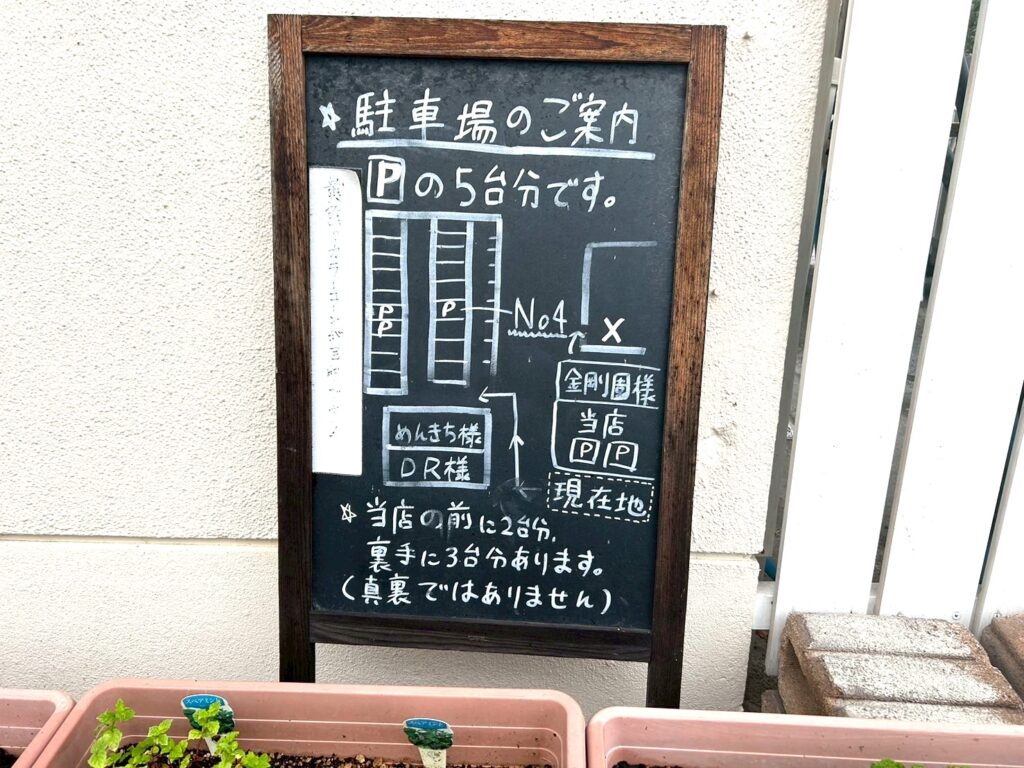 ☆ 駐車場のご案内
Pの5台分です。
P
P
P
No4
X
金剛園様
当店
P P
めんきち様
DR様
現在地
☆ 当店の前に2台分、
裏手に3台分あります。
(真裏ではありません)
スペアミント